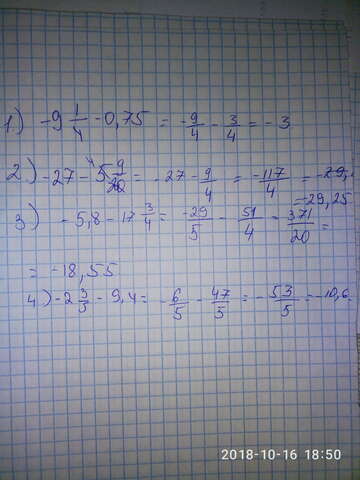 1.) -9 1/4 - 0,75 = -9/4 - 3/4 = -3
2.) -27 - 5 9/20 = -27 - 9/4 = -117/4 = -29,
= -29,25
3) -5,8 - 17 3/4 = -29/5 - 51/4 - 371/20 =
= -18,55
4.) -2 3/5 - 9,4 = -6/5 - 47/5 = -53/5 = -10,6
2018-10-16 18:50